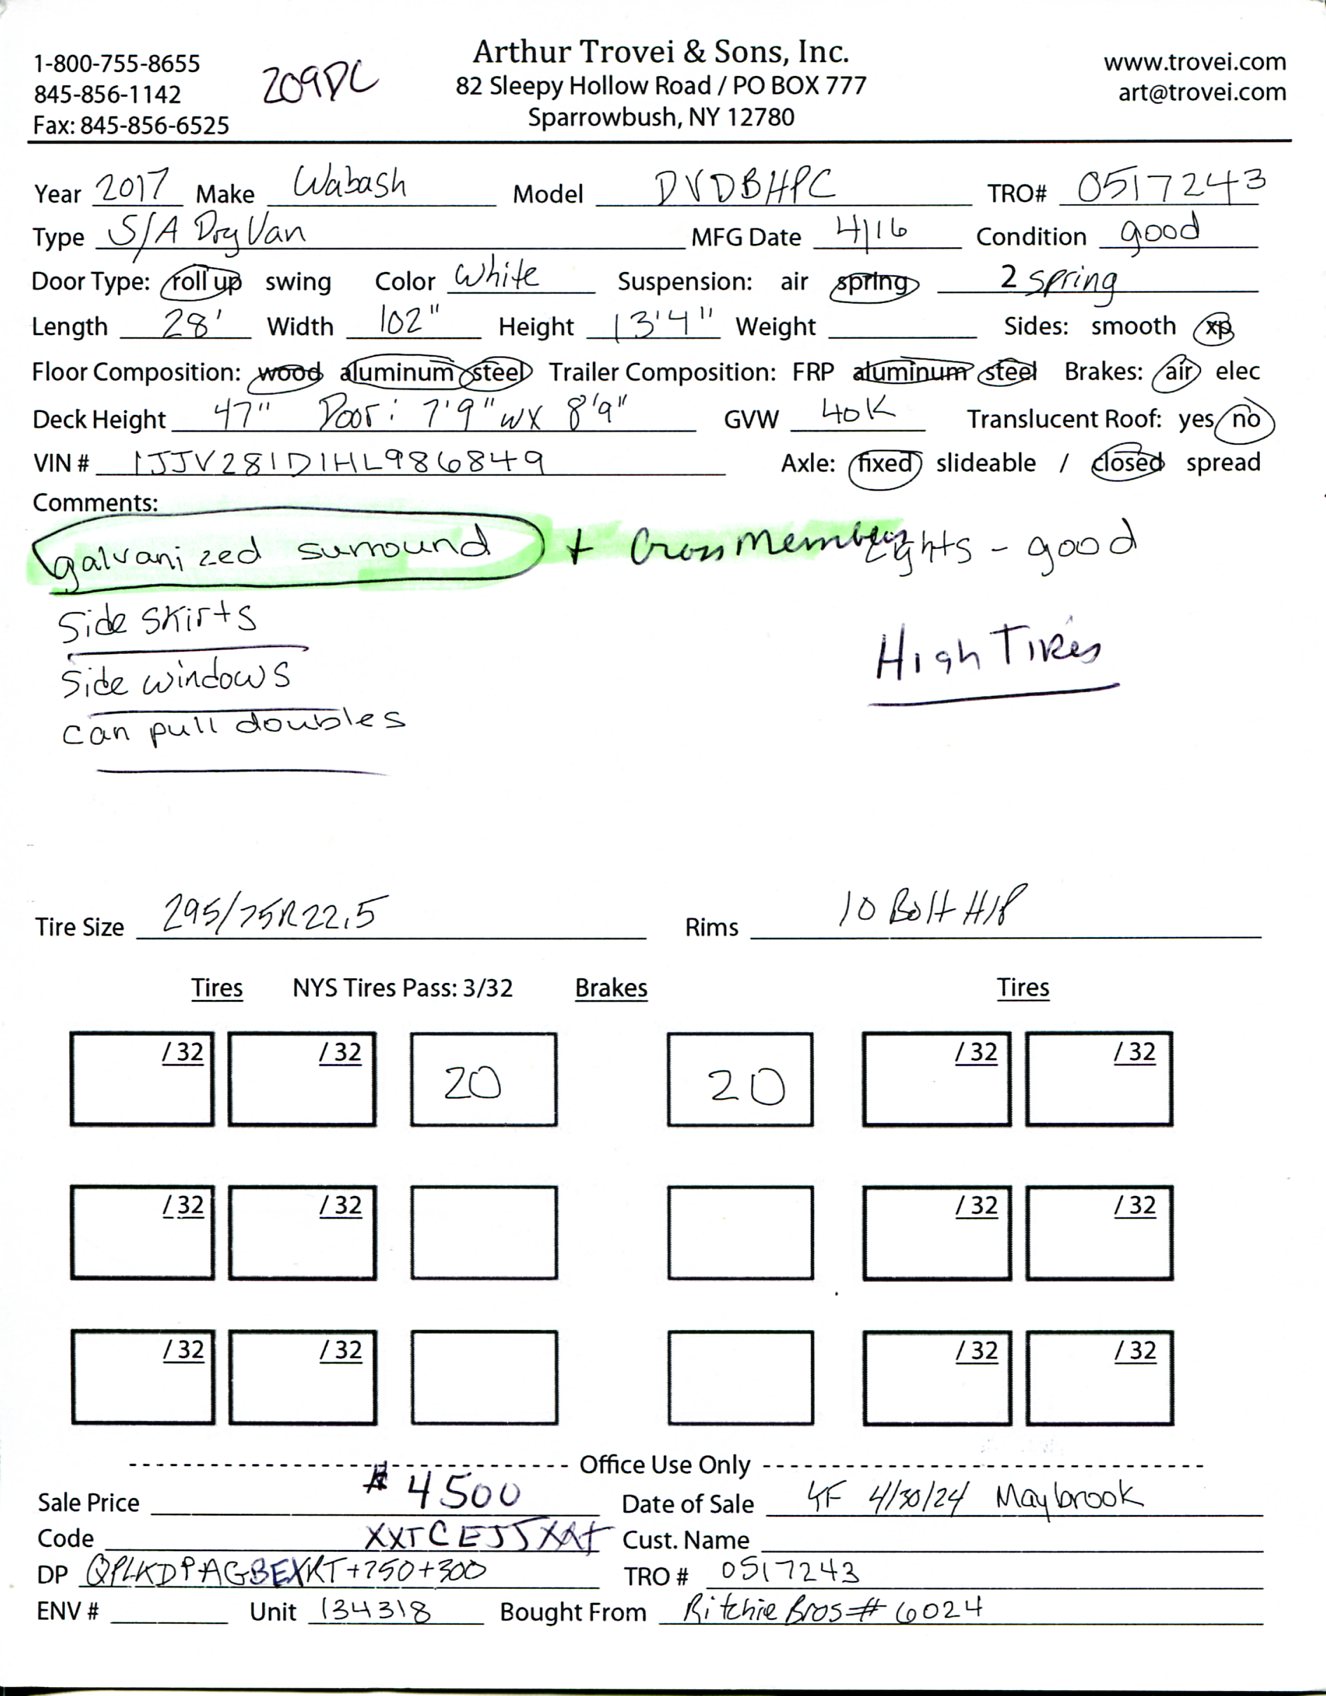 1-800-755-8655
845-856-1142
Fax: 845-856-6525
209DC
Arthur Trovei & Sons, Inc.
82 Sleepy Hollow Road / PO BOX 777
Sparrowbush, NY 12780
www.trovei.com
art@trovei.com
Year 2017 Make Wabash Model DVDBHPC TRO# 0517243
Type S/A Dry Van MFG Date 4/16 Condition good
Door Type: roll up swing Color White Suspension: air spring 2 spring
Length 28' Width 102" Height 13'4" Weight Sides: smooth xp
Floor Composition: wood aluminum steel Trailer Composition: FRP aluminum steel Brakes: air elec
Deck Height 47" Door: 7'9" w x 8'9" GVW 40K Translucent Roof: yes no
VIN # 1JJV281D1HL986849 Axle: fixed slideable / closed spread
Comments:
galvanized surround + Cross Members Lights - good
Side skirts
High Tires
Side windows
can pull doubles
Tire Size 295/75R22.5 Rims 10 Bolt H/P
Tires NYS Tires Pass: 3/32 Brakes Tires
/32 /32 20 20 /32 /32
/32 /32 /32 /32
/32 /32 /32 /32
Office Use Only
Sale Price $4500 Date of Sale YF 4/30/24 Maybrook
Code Cust. Name
DP QPLKDPAGBEXRT+750+300 TRO # 0517243
ENV # Unit 134318 Bought From Ritchie Bros # 6024